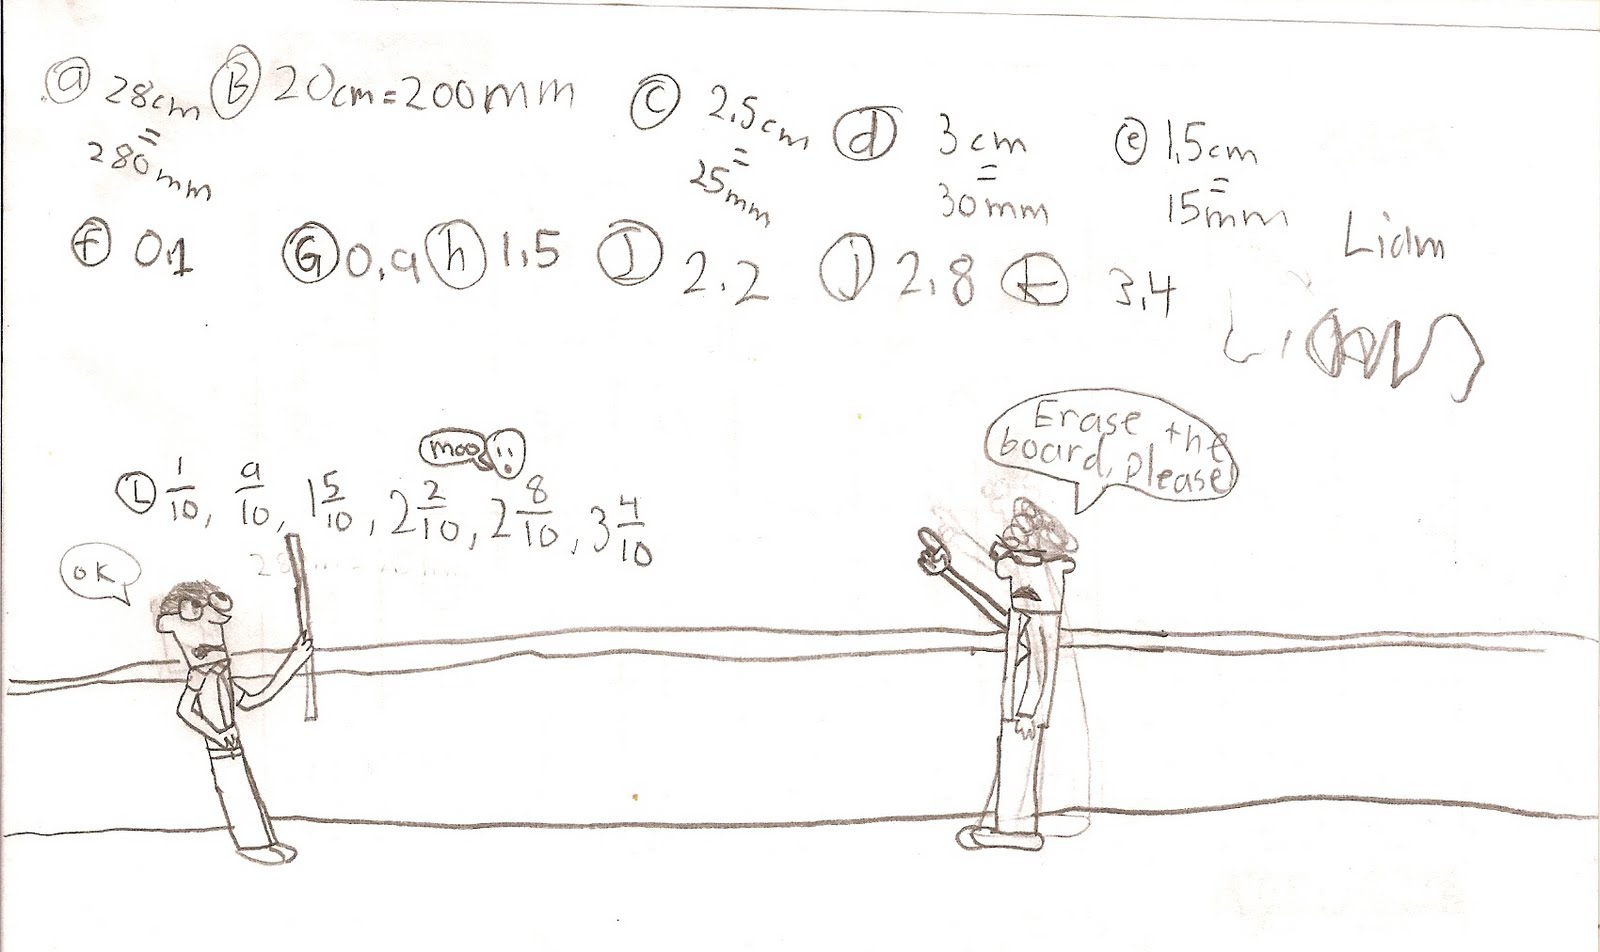 a 28cm = 280mm
B 20cm=200mm
C 2.5cm = 25mm
d 3cm = 30mm
e 1.5cm = 15mm
F 0.1
G 0.9
h 1.5
I 2.2
j 2.8
k 3.4
Liam
Liam
moo
L 1/10, 9/10, 1 5/10, 2 2/10, 2 8/10, 3 4/10
Erase the
board, please!
OK